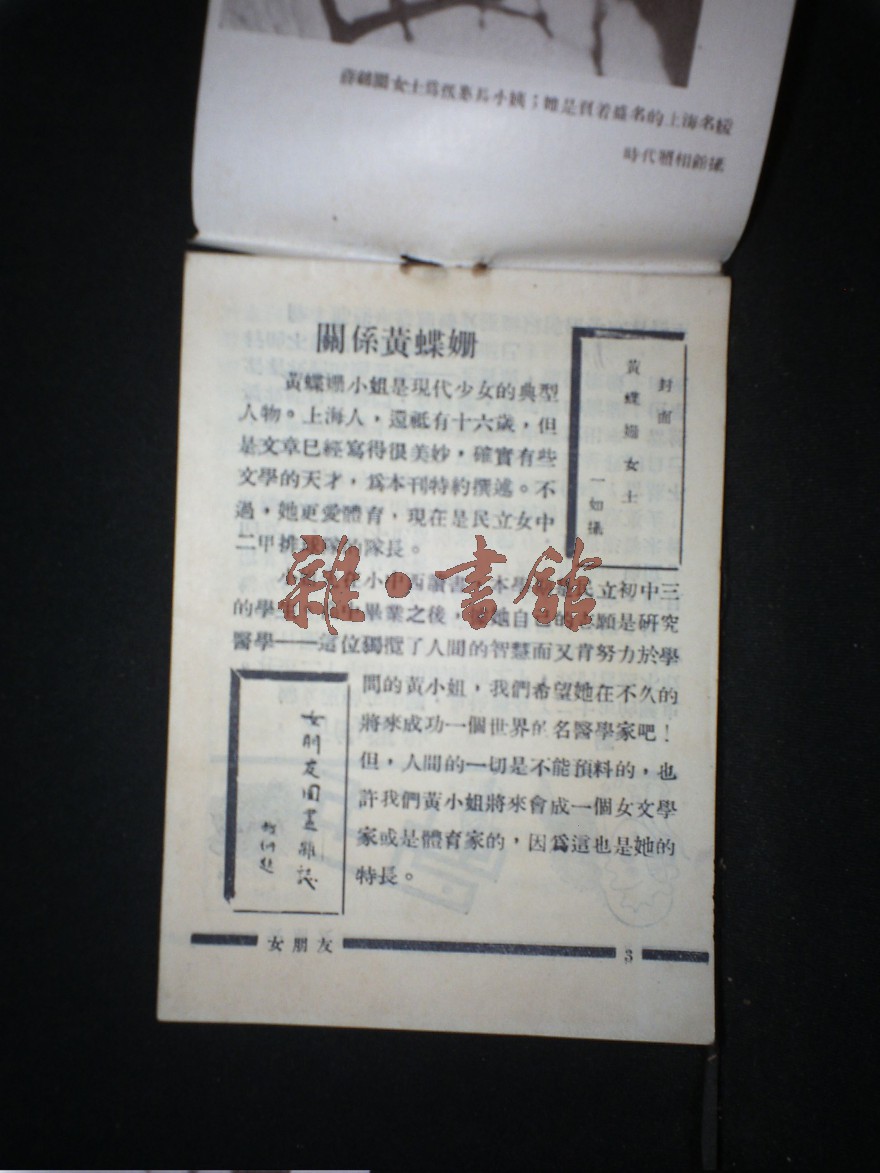 時代照相館攝
關係黃蝶姍
黃蝶姍小姐是現代少女的典型
人物。上海人,還祗有十六歲,但
是文章已經寫得很美妙,確實有些
文學的天才,爲本刊特約撰述。不
過,她更愛體育,現在是民立女中
二甲排球隊的隊長。
在小中西讀書,本學 民立初中三
的學 畢業之後, 她自己的 願是研究
醫學——這位獨攬了人間的智慧而又肯努力於學
問的黃小姐,我們希望她在不久的
將來成功一個世界的名醫學家吧!
但,人間的一切是不能預料的,也
許我們黃小姐將來會成一個女文學
家或是體育家的,因爲這也是她的
特長。
封面
黃蝶姍女士
一如攝
女朋友圖畫雜誌
女朋友
3
雜·書館